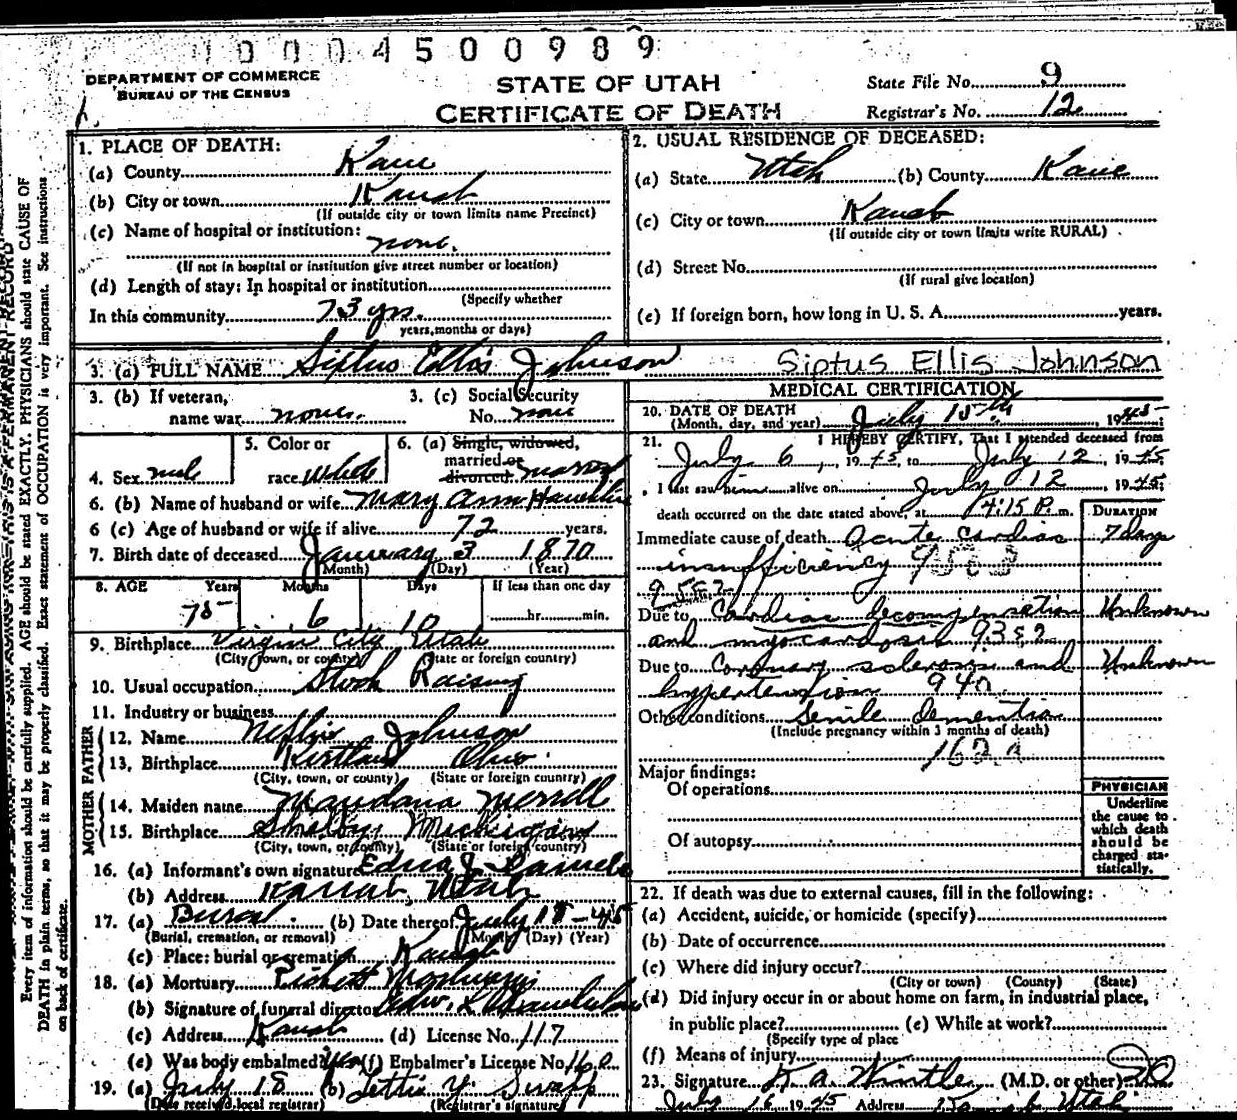 0004500989
DEPARTMENT OF COMMERCE
BUREAU OF THE CENSUS
STATE OF UTAH
CERTIFICATE OF DEATH
State File No. 9
Registrar's No. 12
Every item of information should be carefully supplied. AGE should be stated EXACTLY. PHYSICIANS should state CAUSE OF
DEATH in plain terms, so that it may be properly classified. Exact statement of OCCUPATION is very important. See instructions
on back of certificate.
1. PLACE OF DEATH:
(a) County Kane
(b) City or town Kanab
(If outside city or town limits name Precinct)
(c) Name of hospital or institution:
none.
(If not in hospital or institution give street number or location)
(d) Length of stay: In hospital or institution
(Specify whether
In this community 73 yrs.
years, months or days)
2. USUAL RESIDENCE OF DECEASED:
(a) State Utah (b) County Kane
(c) City or town Kanab
(If outside city or town limits write RURAL)
(d) Street No.
(If rural give location)
(e) If foreign born, how long in U. S. A. years.
3. (a) FULL NAME Siptus Ellis Johnson Siptus Ellis Johnson
3. (b) If veteran,
name war none.
3. (c) Social Security
No. none
4. Sex male
5. Color or
race White
6. (a) Single, widowed,
married or
divorced married
6. (b) Name of husband or wife Mary Ann
6 (c) Age of husband or wife if alive 72 years.
7. Birth date of deceased January 3 1870
(Month) (Day) (Year)
8. AGE Years Months Days If less than one day
75 6 10 hr. min.
9. Birthplace Virgin City Utah
(City, town, or county) (State or foreign country)
10. Usual occupation Stock Raising
11. Industry or business
FATHER
12. Name Johnson
13. Birthplace Kirtland Ohio
(City, town, or county) (State or foreign country)
MOTHER
14. Maiden name Maudana Merrill
15. Birthplace Shelby Michigan
(City, town, or county) (State or foreign country)
16. (a) Informant's own signature Edna J.
(b) Address Kanab, Utah
17. (a) Burial (b) Date thereof July
(Burial, cremation, or removal) (Month) (Day) (Year)
(c) Place: burial or cremation Kanab
18. (a) Mortuary
(b) Signature of funeral director
(c) Address Kanab (d) License No. 117
(e) Was body embalmed? Yes (f) Embalmer's License No.
19. (a) July 18 (b) Lettie Y. Swapp
(Date received local registrar) (Registrar's signature)
MEDICAL CERTIFICATION
20. DATE OF DEATH
(Month, day, and year) July 1945
21. I HEREBY CERTIFY, That I attended deceased from
July 6, 1945, to July 12, 1945
I last saw him alive on July 12 1945
death occurred on the date stated above, at 4:15 P. m.
DURATION
Immediate cause of death Acute Cardiac 7 days
insufficiency
Due to Cardiac decompensation Unknown
and
Due to Coronary sclerosis and Unknown
hypertension
Other conditions Senile Dementia
(Include pregnancy within 3 months of death)
162a
Major findings:
Of operations
Of autopsy
PHYSICIAN
Underline
the cause to
which death
should be
charged sta-
tistically.
22. If death was due to external causes, fill in the following:
(a) Accident, suicide, or homicide (specify)
(b) Date of occurrence
(c) Where did injury occur?
(City or town) (County) (State)
(d) Did injury occur in or about home on farm, in industrial place,
in public place? (e) While at work?
(Specify type of place
(f) Means of injury
23. Signature (M.D. or other)
July 16 1945 Address Kanab Utah